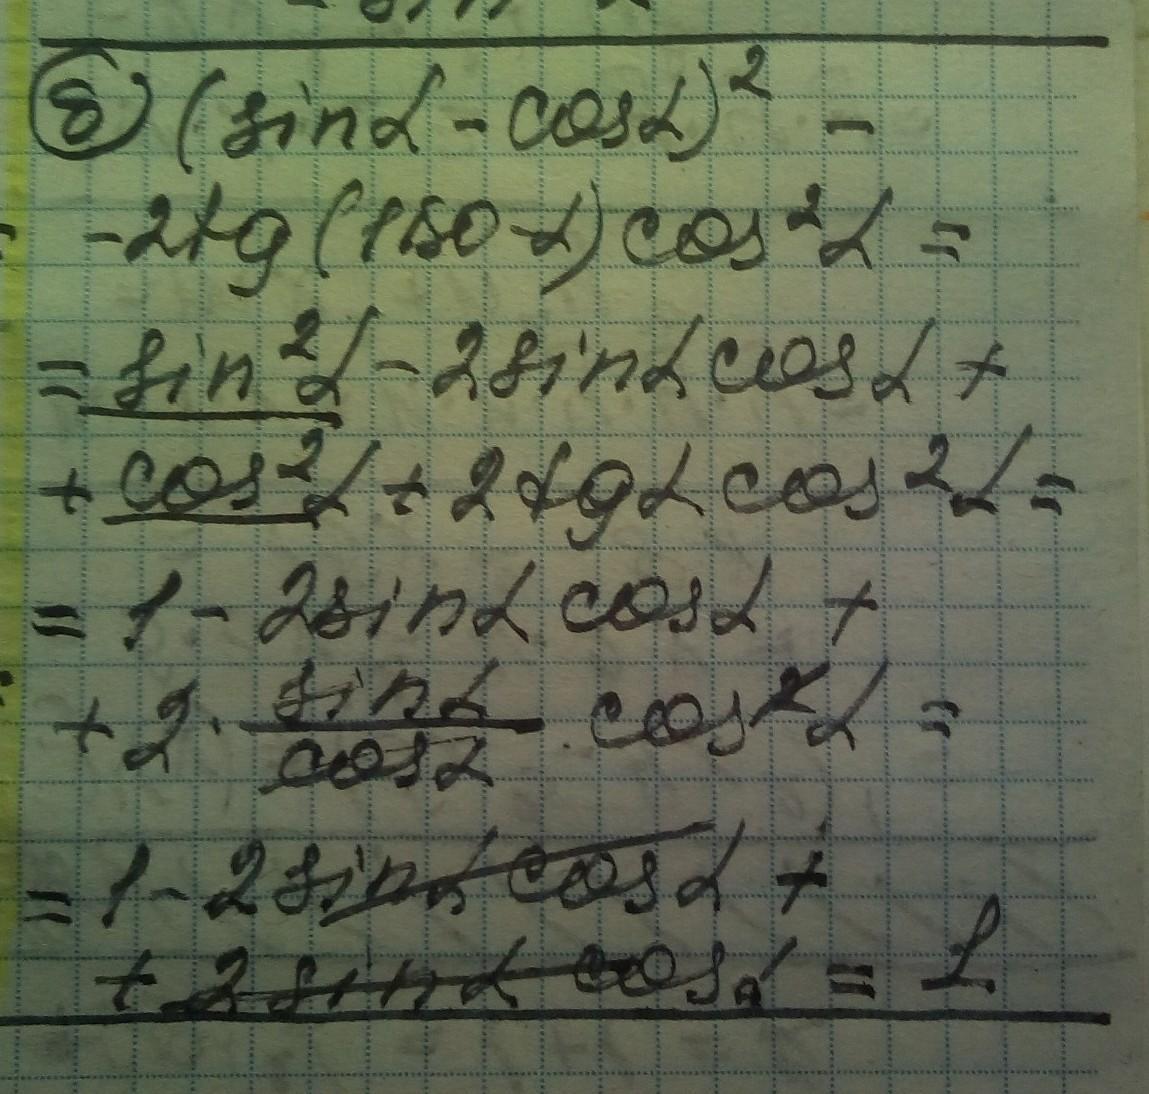 б) (sinα - cosα)² -
- 2tg(180-α)cos²α =
= sin²α - 2sinα cosα +
+ cos²α + 2tgα cos²α =
= 1 - 2sinα cosα +
+ 2 · sinα/cosα · cos²α =
= 1 - 2sinα cosα +
+ 2sinα cosα = 1